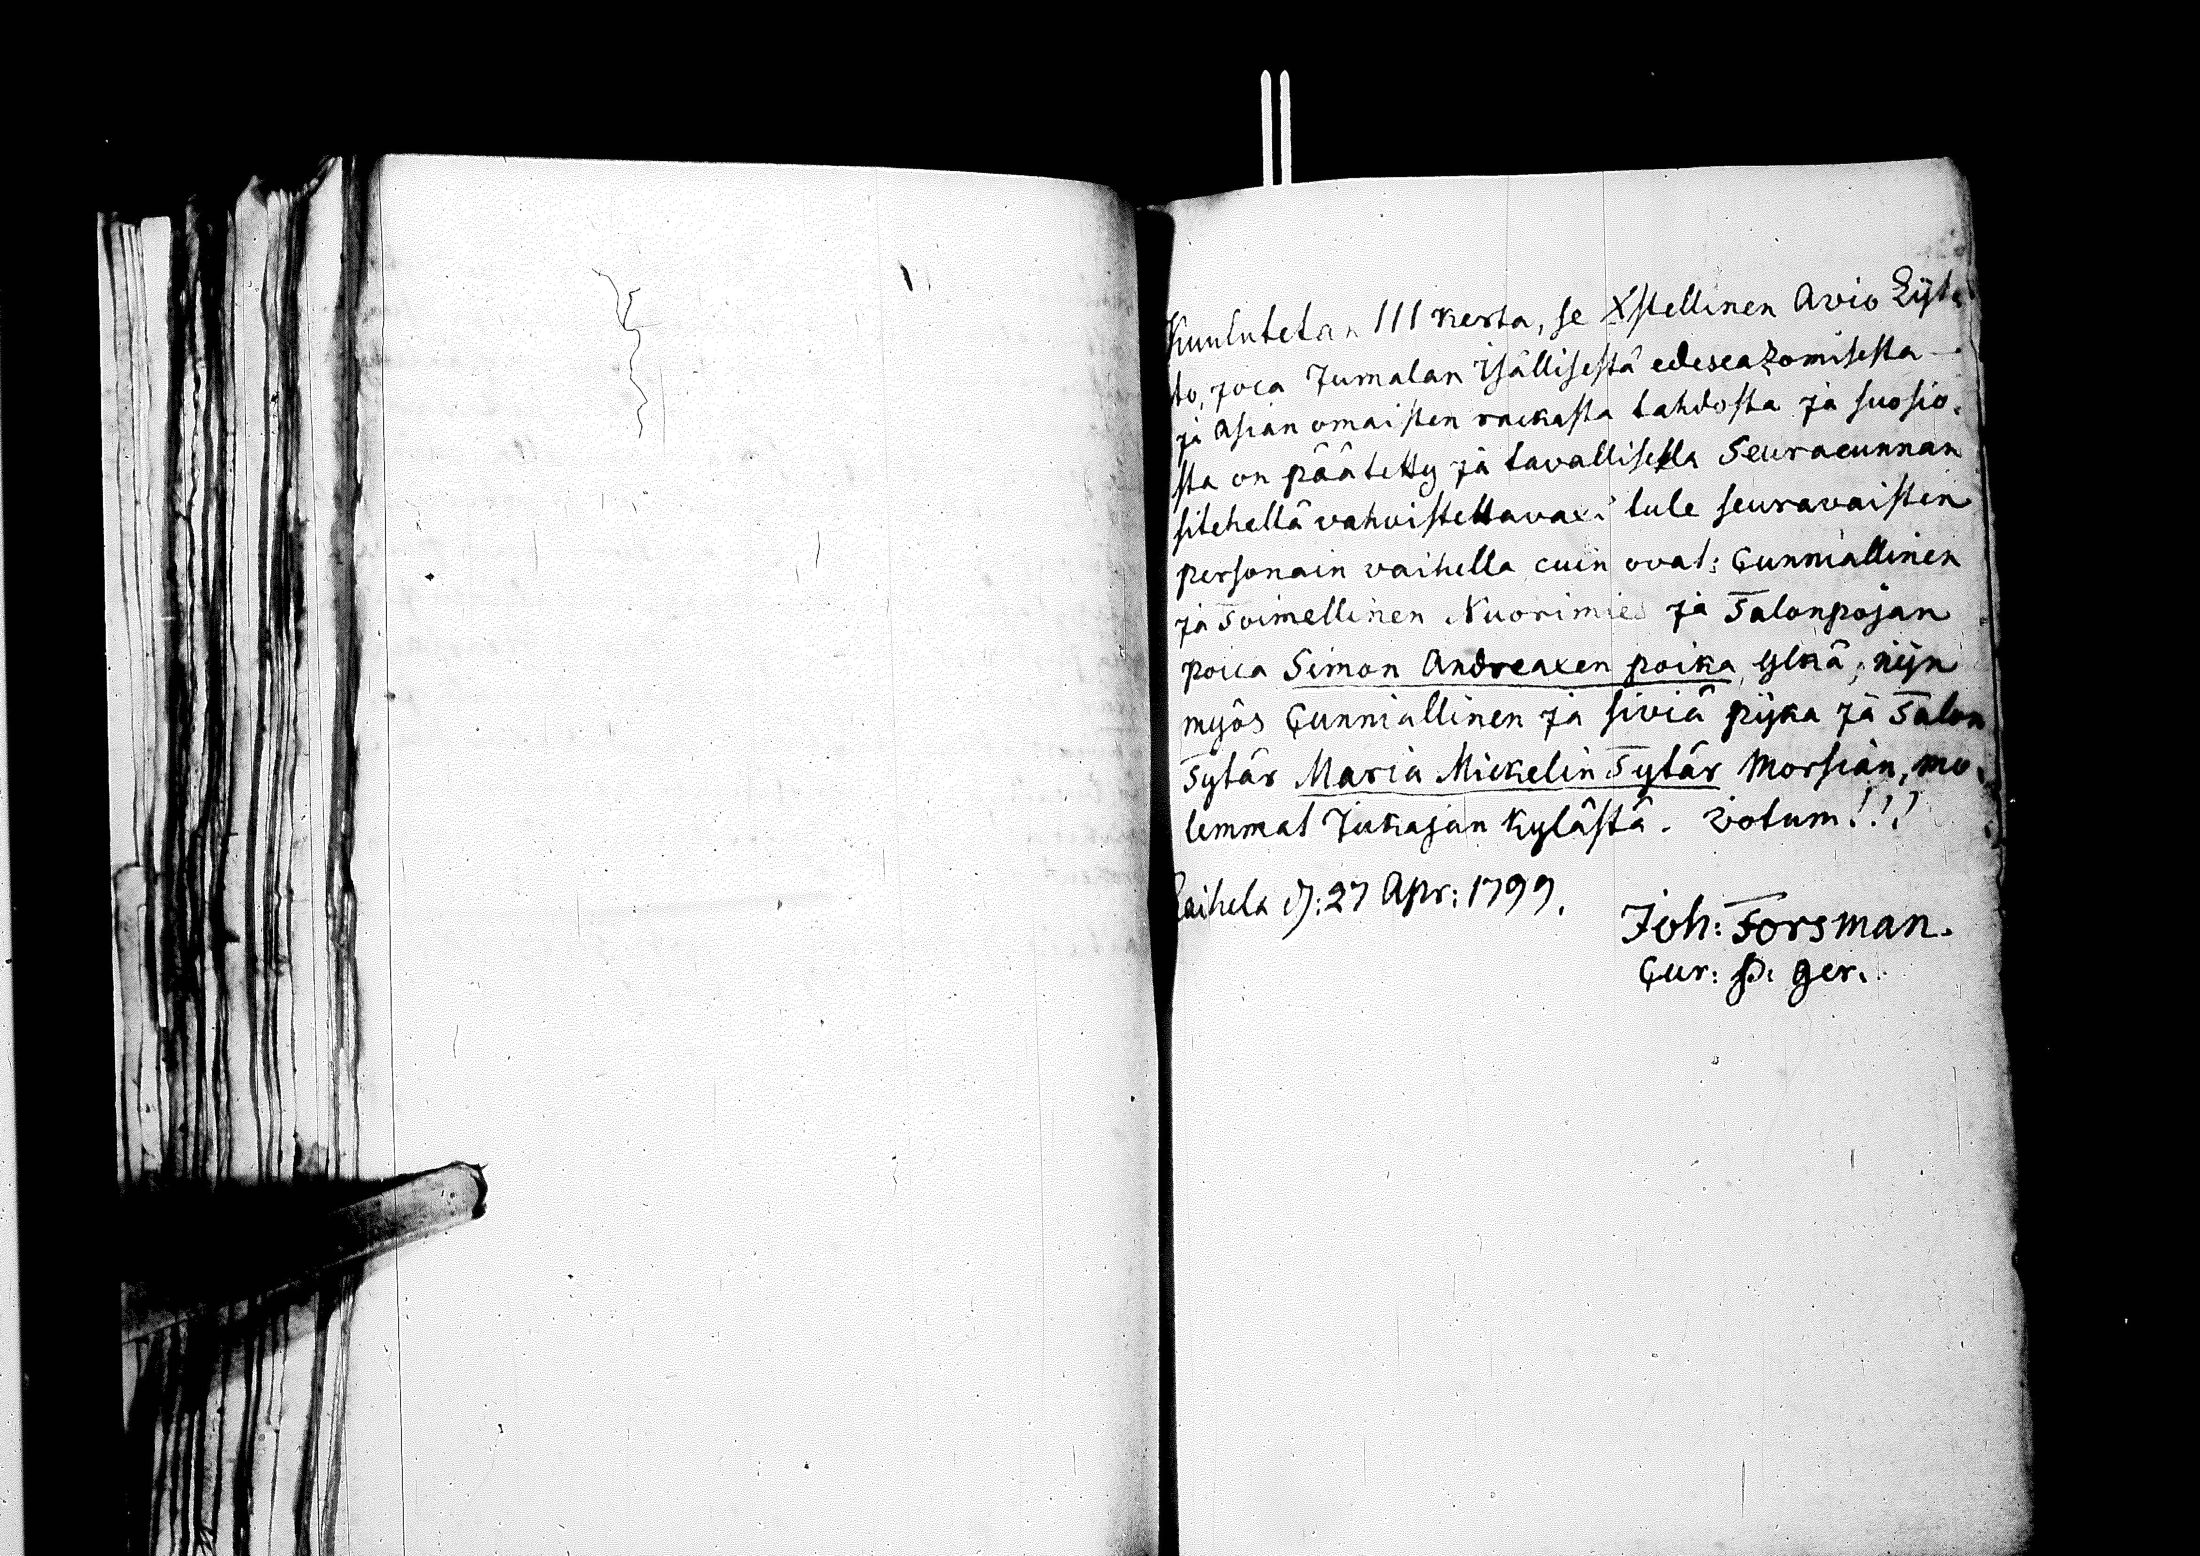 Kuulutetan III kerta, se Xstellinen Avio Kijt
to, joca Jumalan Isällisestä edescazomisesta
ja Asian omaisten rackasta tahdosta ja suosio-
sta on päätetty ja tavallisella Seuracunnan
sitehellä vahvistettavaxi tule seuravaisten
personain vaihella cuin ovat: Cunniallinen
ja Toimellinen Nuorimies ja Talonpojan
poica Simon Andreaxen poika Ylkä, nijn
myös Cunniallinen ja siviä pijka ja Talon
Tytär Maria Mickelin Tytär Morsian, mo-
lemmat Jukajan kylästä. Votum!!!
Laihela d: 27 Apr: 1799.
Joh: Forsman.
Cur: p. ger.